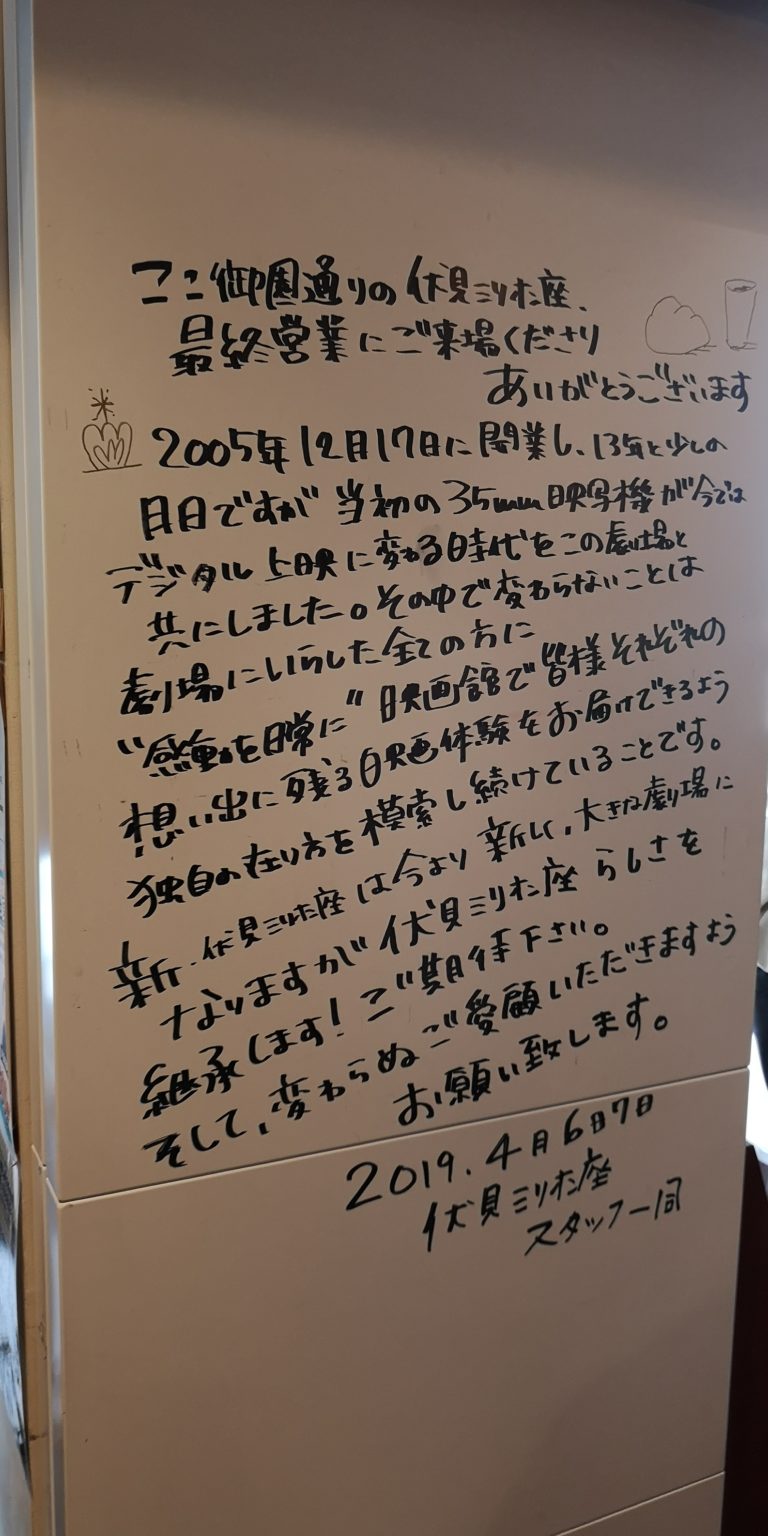 ここ御園通りの伏見ミリオン座、
最終営業にご来場くださり
ありがとうございます
2005年12月17日に開業し、13年と少しの
月日ですが当初の35mm映写機が今では
デジタル上映に変わる時代をこの劇場と
共にしました。その中で変わらないことは
劇場にいらした全ての方に
“感動を日常に”映画館で皆様それぞれの
想い出に残る映画体験をお届けできるよう
独自の在り方を模索し続けていることです。
新・伏見ミリオン座は今より新しく、大きな劇場に
なりますが伏見ミリオン座らしさを
継承します！ご期待下さい。
そして、変わらぬご愛顧いただきますよう
お願い致します。
2019.4月6日7日
伏見ミリオン座
スタッフ一同